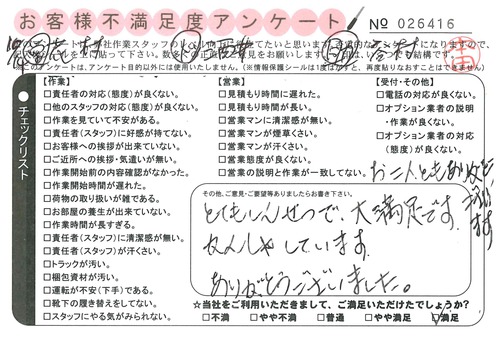 お客様不満足度アンケート
No 026416
チェックリスト
【作業】
□責任者の対応(態度)が良くない。
□他のスタッフの対応(態度)が良くない。
□作業を見ていて不安がある。
□責任者(スタッフ)に好感が持てない。
□お客様への挨拶が出来ていない。
□ご近所への挨拶・気遣いが無い。
□作業開始前の内容確認がなかった。
□作業開始時間が遅れた。
□荷物の取り扱いが雑である。
□お部屋の養生が出来ていない。
□作業時間が長すぎる。
□責任者(スタッフ)に清潔感が無い。
□責任者(スタッフ)が汗くさい。
□トラックが汚い。
□梱包資材が汚い。
□運転が不安(下手)である。
□靴下の履き替えをしてない。
□スタッフにやる気がみられない。
【営業】
□見積もり時間に遅れた。
□見積もり時間が長い。
□営業マンに清潔感が無い。
□営業マンが煙草くさい。
□営業マンが汗くさい。
□営業態度が良くない。
□営業の説明と作業が一致してない。
【受付・その他】
□電話の対応が良くない。
□オプション業者の説明
・作業が良くない。
□オプション業者の対応
(態度)が良くない。
お二人ともありがとうございます
その他、ご意見・ご要望等ありましたらお書き下さい。
とてもしんせつで、大満足です。
かんしゃしています。
ありがとうございました。
☆当社をご利用いただきまして、ご満足いただけたでしょうか?
□不満 □やや不満 □普通 □やや満足 □満足